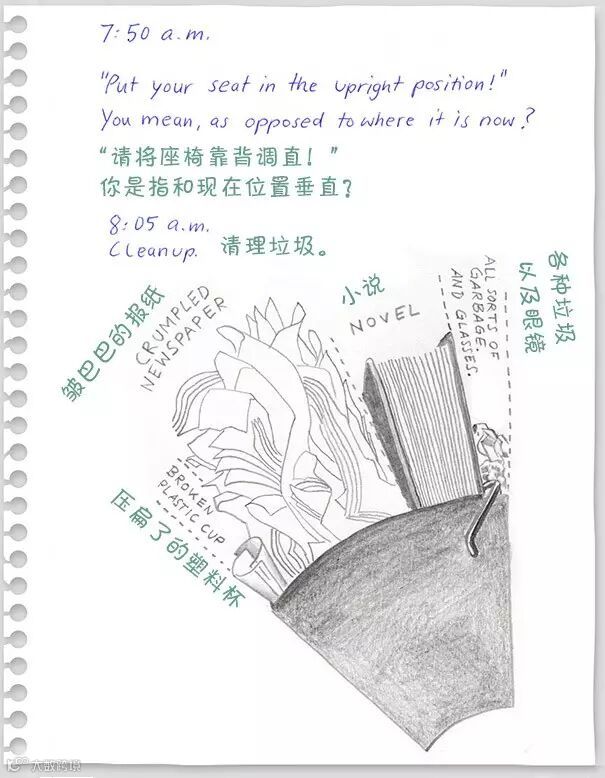 7:50 a.m.
"Put your seat in the upright position!"
You mean, as opposed to where it is now?
“请将座椅靠背调直！”
你是指和现在位置垂直？
8:05 a.m.
Cleanup. 清理垃圾。
皱巴巴的报纸
CRUMPLED
NEWSPAPER
小说
NOVEL
ALL SORTS OF
GARBAGE.
AND GLASSES.
各种垃圾
以及眼镜
BROKEN
PLASTIC CUP
压扁了的塑料杯
大数跨境